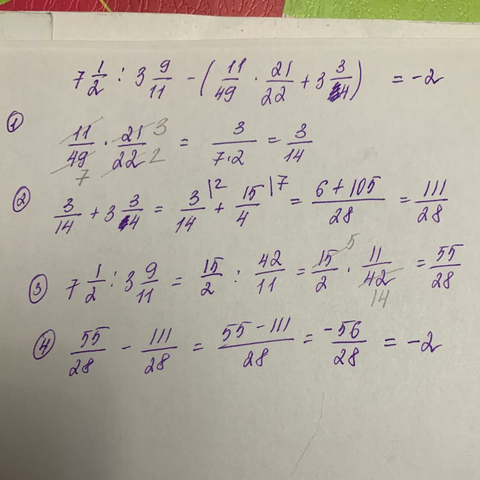 7 1/2 : 3 9/11 - (11/49 · 21/22 + 3 3/4) = -2
① 11/49 · 21/22 = 3/(7·2) = 3/14
3
7 2
② 3/14 + 3 3/4 = 3/14 |2 + 15/4 |7 = (6+105)/28 = 111/28
③ 7 1/2 : 3 9/11 = 15/2 : 42/11 = 15/2 · 11/42 = 55/28
5
14
④ 55/28 - 111/28 = (55-111)/28 = -56/28 = -2